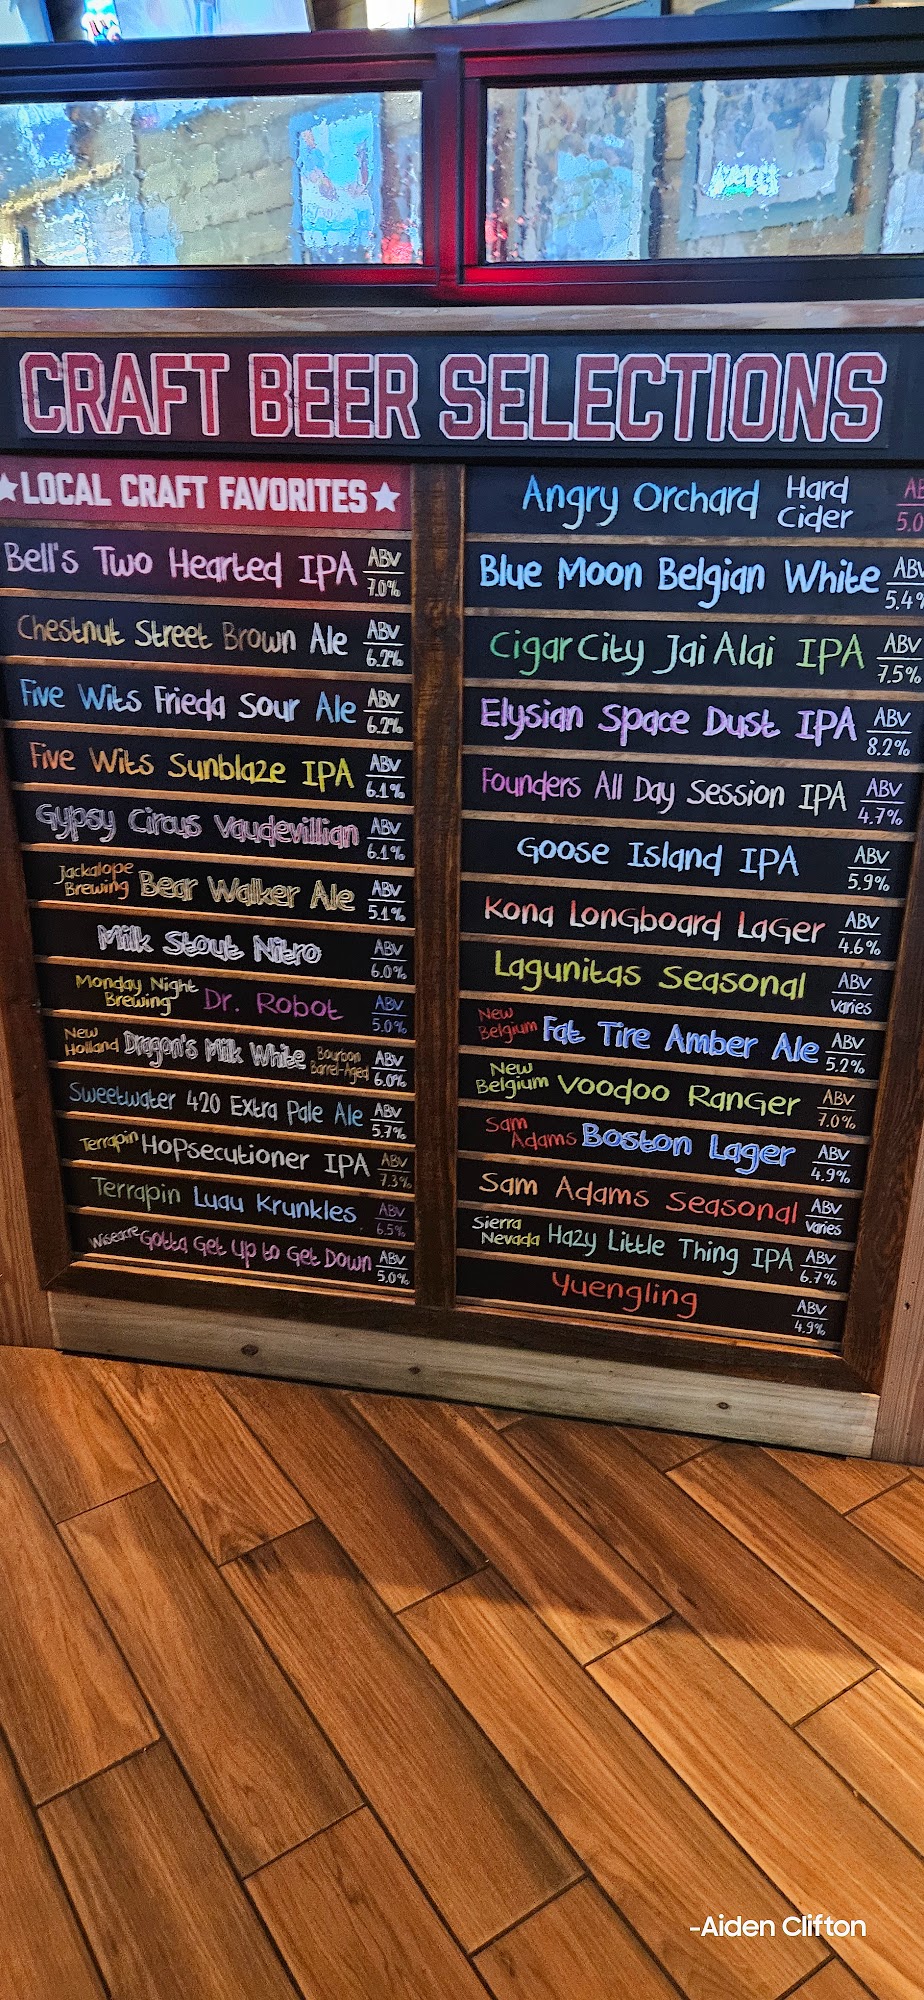 CRAFT BEER SELECTIONS
★LOCAL CRAFT FAVORITES★
Bell's Two Hearted IPA ABV 7.0%
Chestnut Street Brown Ale ABV 6.2%
Five Wits Frieda Sour Ale ABV 6.2%
Five Wits Sunblaze IPA ABV 6.1%
Gypsy Circus Vaudevillian ABV 6.1%
Jackalope Brewing Bear Walker Ale ABV 5.1%
Milk Stout Nitro ABV 6.0%
Monday Night Brewing Dr. Robot ABV 5.0%
New Holland Dragon's Milk White Bourbon Barrel-Aged ABV 6.0%
Sweetwater 420 Extra Pale Ale ABV 5.7%
Terrapin HoPsecutioner IPA ABV 7.3%
Terrapin Luau Krunkles ABV 6.5%
Wiseacre Gotta Get Up to Get Down ABV 5.0%
Angry Orchard Hard Cider AB 5.0
Blue Moon Belgian White ABV 5.4%
Cigar City Jai Alai IPA ABV 7.5%
Elysian Space Dust IPA ABV 8.2%
Founders All Day Session IPA ABV 4.7%
Goose Island IPA ABV 5.9%
Kona Longboard LaGer ABV 4.6%
Lagunitas Seasonal ABV varies
New Belgium Fat Tire Amber Ale ABV 5.2%
New Belgium Voodoo RanGer ABV 7.0%
Sam Adams Boston Lager ABV 4.9%
Sam Adams Seasonal ABV varies
Sierra Nevada Hazy Little Thing IPA ABV 6.7%
Yuengling ABV 4.9%
-Aiden Clifton